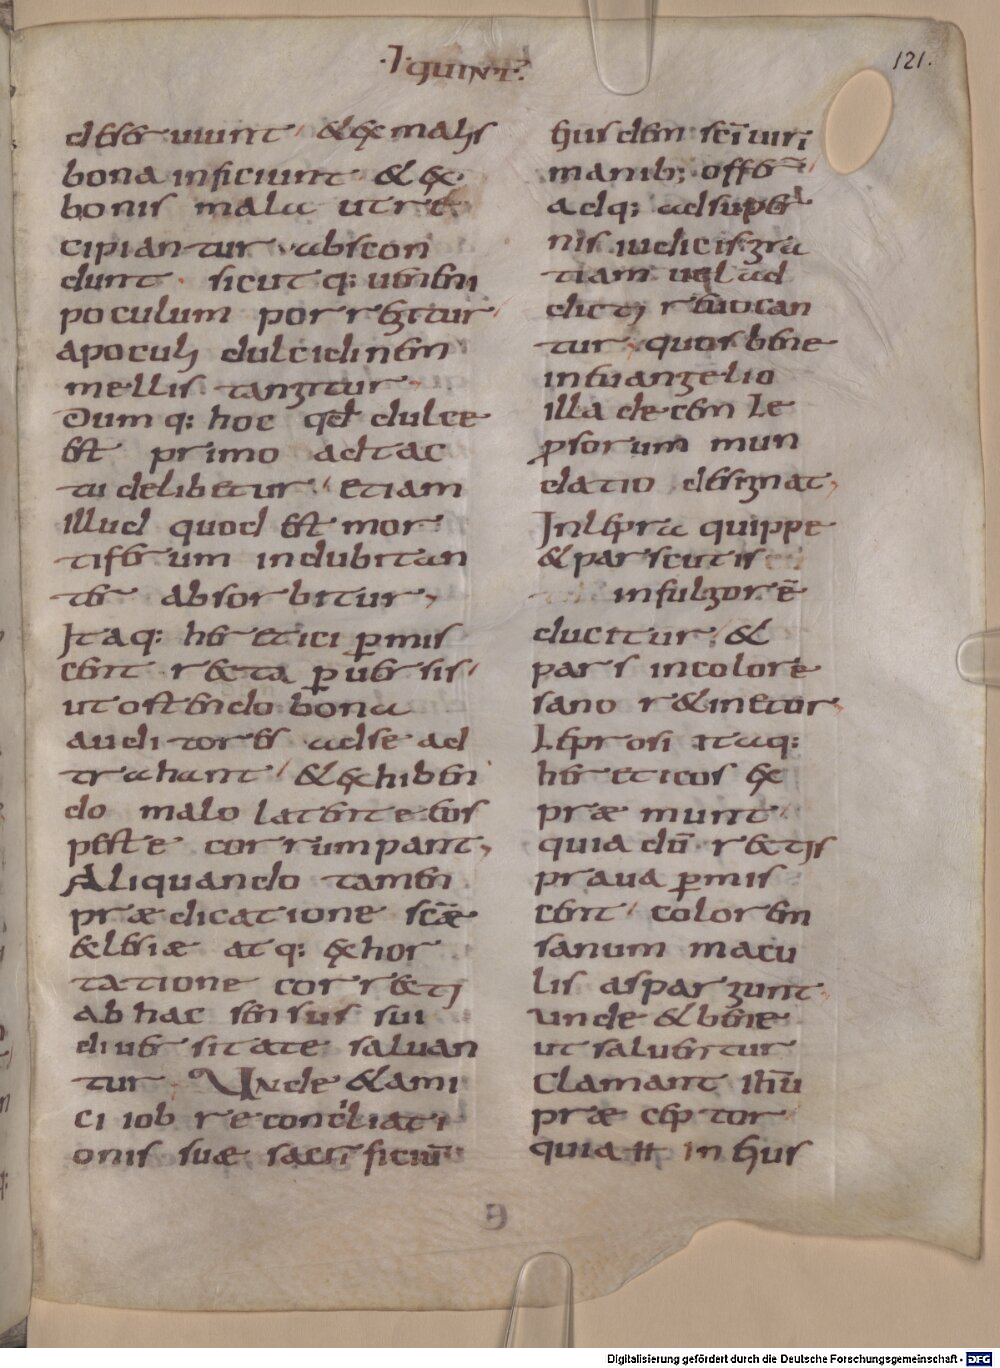 ·I· quint·
121.
deserviunt & ex malis
bona inficiunt & ex
bonis mala ut re
cipiantur abscon
dunt · sicutq: veneni
poculum porrigitur
a poculi dulcidinem
mellis tangitur
Dumq: hoc qd dulce
est primo ad tac
tu delibetur etiam
illud quod est mor
tiferum indubitan
ter absorbitur
Itaq: heretici p̱mis
cent recta p̱versis
ut ostendo bona
auditores ad se ad
trahant & exhiben
do mala latente eos
peste corrumpant
Aliquando tamen
prædicatione scæ
eclesiæ atq: exhor
tatione correcti
ab hac sensus sui
diversitate salvan
tur · Unde & ami
ci iob reconciliati
onis suæ sacrificiū
eiusdem sci viri
manib; offer̄
adq; ad super
nis iudicis gra
tiam vel ad
dicti revocan
tur quos bene
in evangelio
illa decem le
p̱sorum mun
datio designat
In lepra quippe
& pars cutis
in fulgorē
ducitur &
pars in colore
sano retinetur
Leprosi itaq:
hereticos ex
præmunt
quia dū rectis
prava p̱mis
cent colorem
sanum macu
lis aspargunt
unde & bene
ut salventur
clamant ihū
præceptor
quia in eius
Digitalisierung gefördert durch die Deutsche Forschungsgemeinschaft - DFG